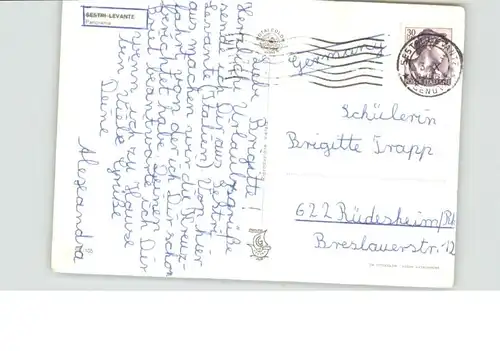 SESTRI-LEVANTE
Panorama
Liebe Brigitte!
Herzliche Urlaubsgrüße
sende ich Dir aus Sestri
Levante (Italien). Von hier
aus machen wir die Kreuz-
fahrt von der ich Dir schon
berichtet habe. Deinen
beantworte ich Dir
wenn ich zu Hause
bin. Viele Grüße
Deine
Alexandra
Germany
30
POSTE ITALIANE
SESTRI LEVANTE
GENOVA
Schülerin
Brigitte Trapp
622 Rüdesheim/Rh
Breslauerstr. 12